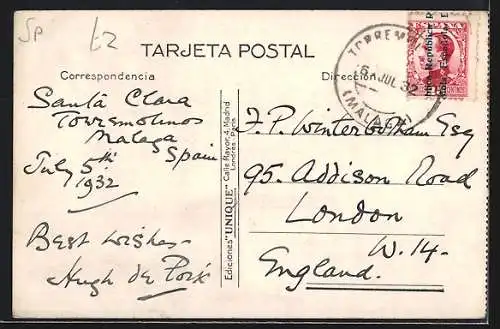 Sp
£2
TARJETA POSTAL
Correspondencia
Dirección
6 JUL 32
(MALAGA)
Santa Clara
Torremolinos
Malaga
Spain
July 5th
1932
Best wishes
Hugh de
Ediciones "UNIQUE" Calle Rayor, 4, Madrid
Londres - Paris
F. P. Winterbotham Esq
95. Addison Road
London
W. 14.
England.